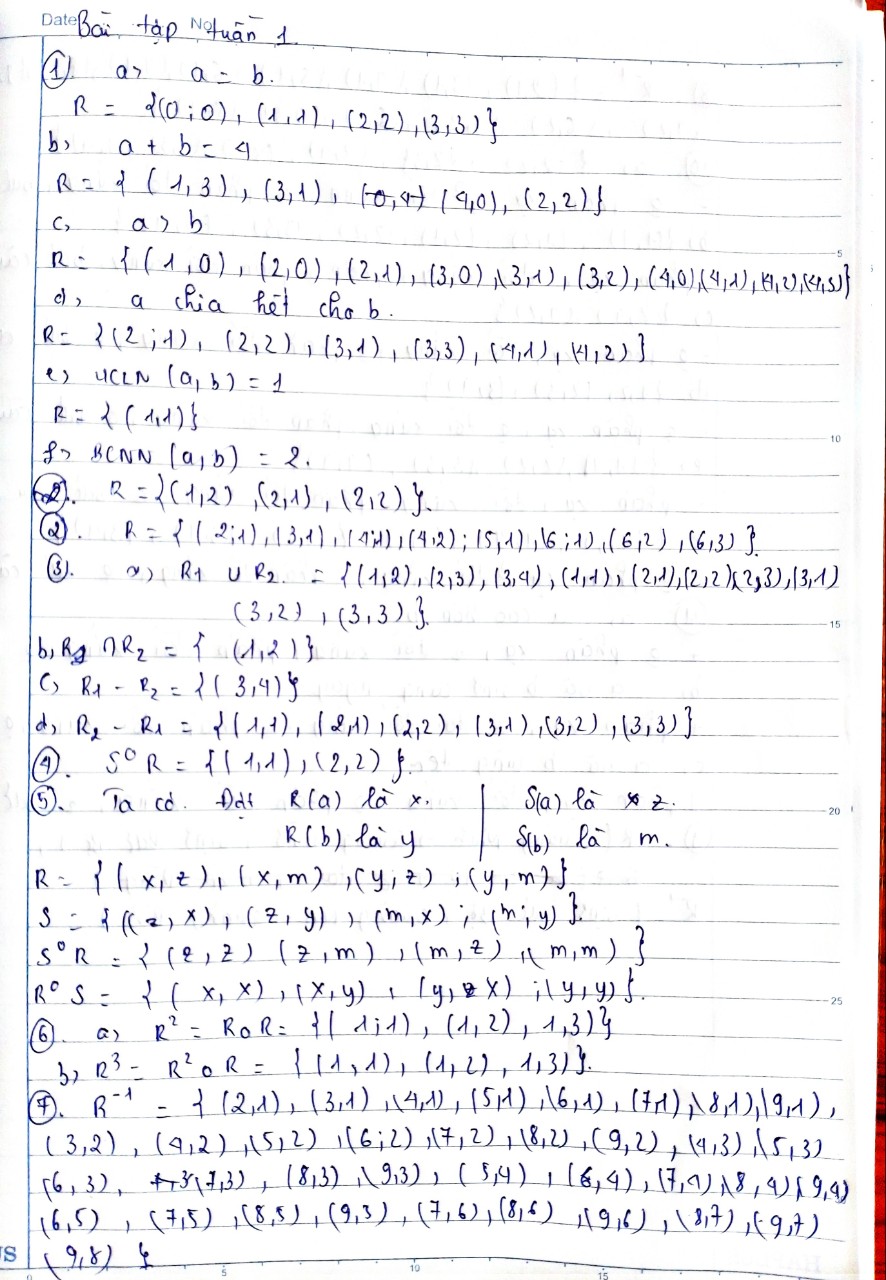 Date No
Bài tập tuần 1.
① a> a = b.
R = {(0;0), (1,1), (2,2), (3,3)}
b, a + b = 4
R = { (1,3), (3,1), (0,4) (4,0), (2,2)}
c, a > b
R = {(1,0), (2,0), (2,1), (3,0), (3,1), (3,2), (4,0), (4,1), (4,2), (4,3)}
d, a chia hết cho b.
R = {(2;1), (2,2), (3,1), (3,3), (4,1), (4,2)}
e, ƯCLN (a,b) = 1
R = {(1,1)}
f> BCNN (a,b) = 2.
②. R = {(1,2), (2,1), (2,2)}.
②. R = {(2;1), (3,1), (4;1), (4,2); (5,1), (6;1), (6,2), (6,3)}.
③. a) R1 ∪ R2. = {(1,2), (2,3), (3,4), (1,1), (2,1), (2,2), (2,3), (3,1)
(3,2), (3,3)}.
b, R1 ∩ R2 = { (1,2)}
c, R1 - R2 = {(3,4)}
d, R2 - R1 = {(1,1), (2,1), (2,2), (3,1), (3,2), (3,3)}
④. S∘R = {(1,1), (2,2)}.
⑤. Ta có. Đặt R(a) là x. | S(a) là z.
R(b) là y | S(b) là m.
R = {(x,z), (x,m), (y,z), (y,m)}
S = {(z,x), (z,y), (m,x); (m;y)}.
S∘R = {(z,z) (z,m), (m,z), (m,m)}
R∘S = {(x,x), (x,y), (y,x); (y,y)}.
⑥. a> R² = R∘R = {(1;1), (1,2), 1,3)}
b, R³ = R²∘R = {(1,1), (1,2), 1,3)}.
⑦. R⁻¹ = {(2,1), (3,1), (4,1), (5,1), (6,1), (7,1), (8,1), (9,1),
(3,2), (4,2), (5,2), (6;2), (7,2), (8,2), (9,2), (4,3), (5,3)
(6,3), (7,3), (8,3), (9,3), (5,4), (6,4), (7,4), (8,4), (9,4)
(6,5), (7,5), (8,5), (9,3), (7,6), (8,6), (9,6), (8,7), (9,7)
(9,8)}
5
10
15
20
25
0 5 10 15